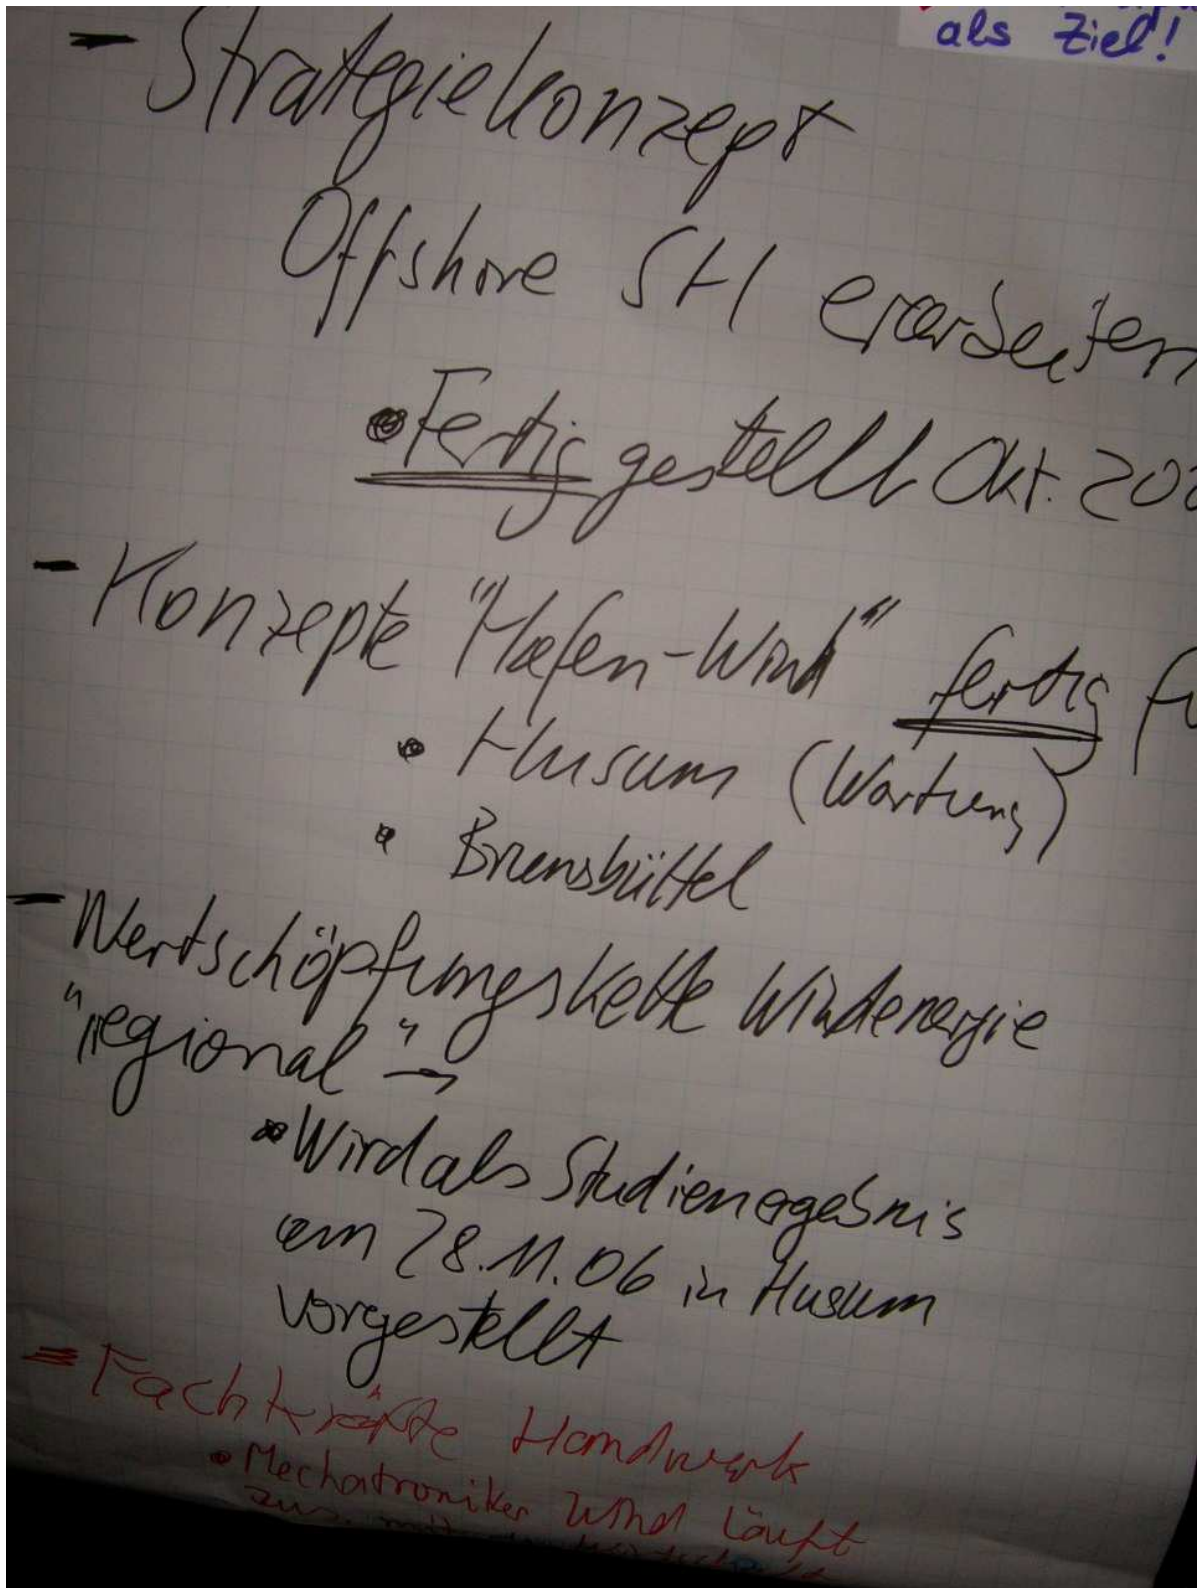 als Ziel!
- Strategiekonzept
Offshore SH erarbeiten
• Fertig gestellt Okt. 200
- Konzepte "Hafen-Wind" fertig
• Husum (Wartung)
• Brunsbüttel
- Wertschöpfungskette Windenergie
"regional" →
• Wird als Studienergebnis
am 28.11.06 in Husum
vorgestellt
- Fachkräfte Handwerk
• Mechatroniker Wind läuft